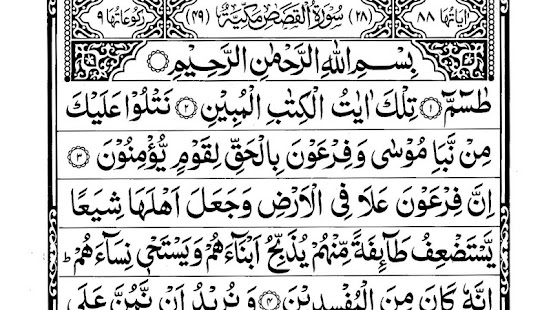 اٰیاتها ٨٨ (٢٨) سُوْرَةُ الْقَصَصِ مَكِّيَّةٌ (٤٩) رُكُوْعَاتُهَا ٩
بِسْمِ اللهِ الرَّحْمٰنِ الرَّحِيْمِ
طٰسٓمّٓ ۝١ تِلْكَ اٰيٰتُ الْكِتٰبِ الْمُبِيْنِ ۝٢ نَتْلُوْا عَلَيْكَ
مِنْ نَّبَاِ مُوْسٰى وَفِرْعَوْنَ بِالْحَقِّ لِقَوْمٍ يُّؤْمِنُوْنَ ۝٣
اِنَّ فِرْعَوْنَ عَلَا فِى الْاَرْضِ وَجَعَلَ اَهْلَهَا شِيَعًا
يَّسْتَضْعِفُ طَآئِفَةً مِّنْهُمْ يُذَبِّحُ اَبْنَآءَهُمْ وَيَسْتَحْىٖ نِسَآءَهُمْ ؕ
اِنَّهٗ كَانَ مِنَ الْمُفْسِدِيْنَ ۝٤ وَ نُرِيْدُ اَنْ نَّمُنَّ عَلَى